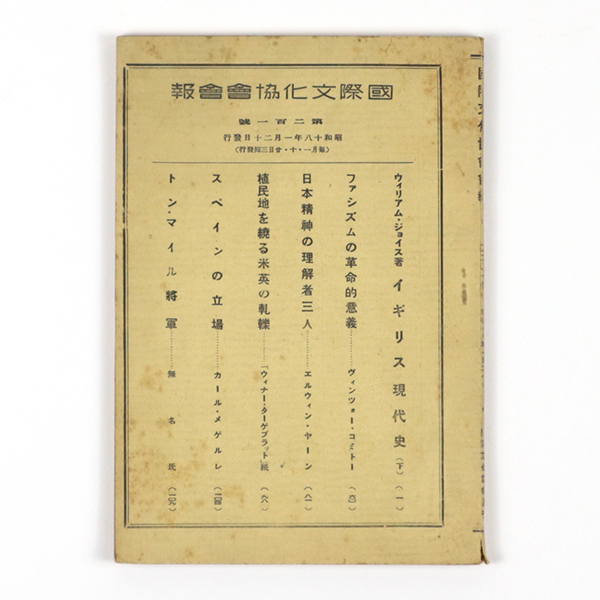 國際文化協會會報
第二百一號
昭和十八年一月二十日發行
(毎月一・十・廿日三囘發行)
ウィリアム・ジョイス著 イギリス現代史(下)…(一)
ファシズムの革命的意義………ヴィンツォー・コミトー(六〇)
日本精神の理解者三人………エルウィン・ヤーン(八一)
植民地を繞る米英の軋轢………「ウィナー・ターゲブラット」紙(九六)
スペインの立場………カール・メゲルレ(一二四)
トン・マイル將軍………無名氏(一二九)
國際文化協會會報